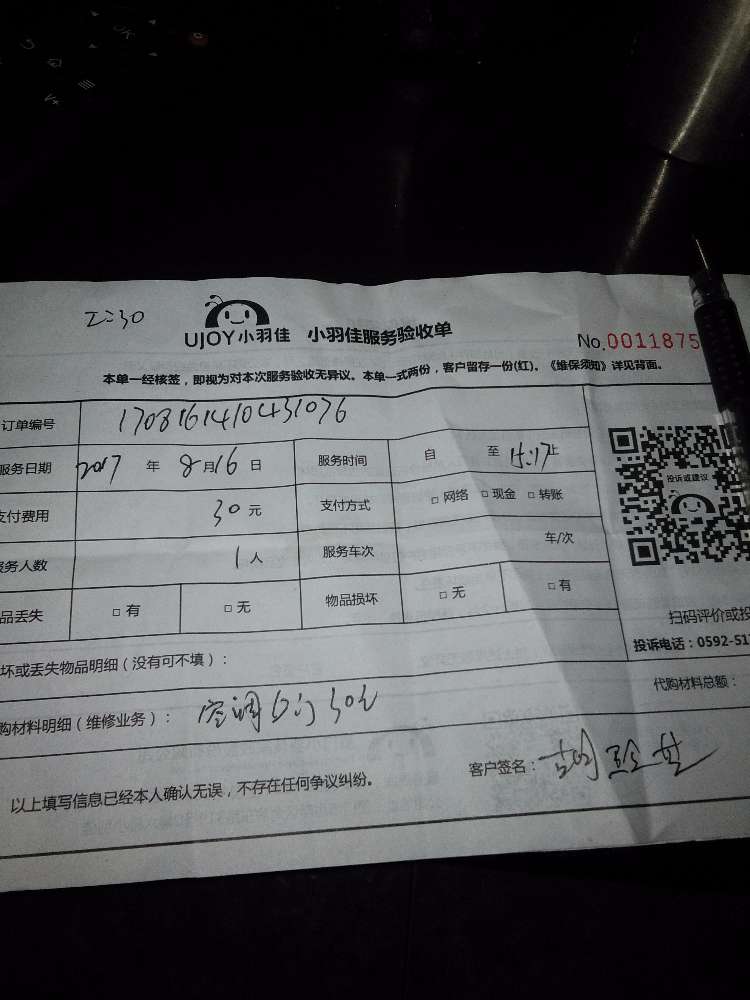 2:30
UJOY小羽佳 小羽佳服务验收单
No.0011875
本单一经核签，即视为对本次服务验收无异议。本单一式两份，客户留存一份(红)。《维保须知》详见背面。
订单编号 1708161410431076
服务日期 2017 年 8 月 16 日 服务时间 自 至 15:17 止
支付费用 30 元 支付方式 □ 网络 □ 现金 □ 转账
服务人数 1 人 服务车次 车/次
品丢失 □ 有 □ 无 物品损坏 □ 无 □ 有
投诉或建议
扫码评价或投
投诉电话：0592-51
坏或丢失物品明细（没有可不填）：
购材料明细（维修业务）： 空调 30元
代购材料总额：
以上填写信息已经本人确认无误，不存在任何争议纠纷。
客户签名：胡